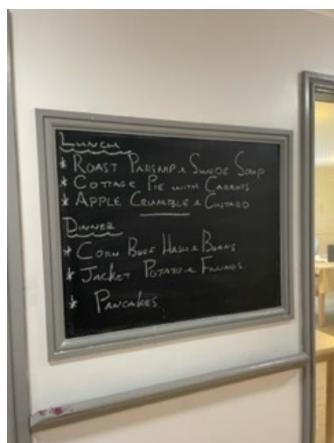 Lunch
* Roast Parsnip & Swede Soup
* Cottage Pie with Carrots
* Apple Crumble & Custard
Dinner
* Corn Beef Hash & Beans
* Jacket Potato & Fillings
* Pancakes